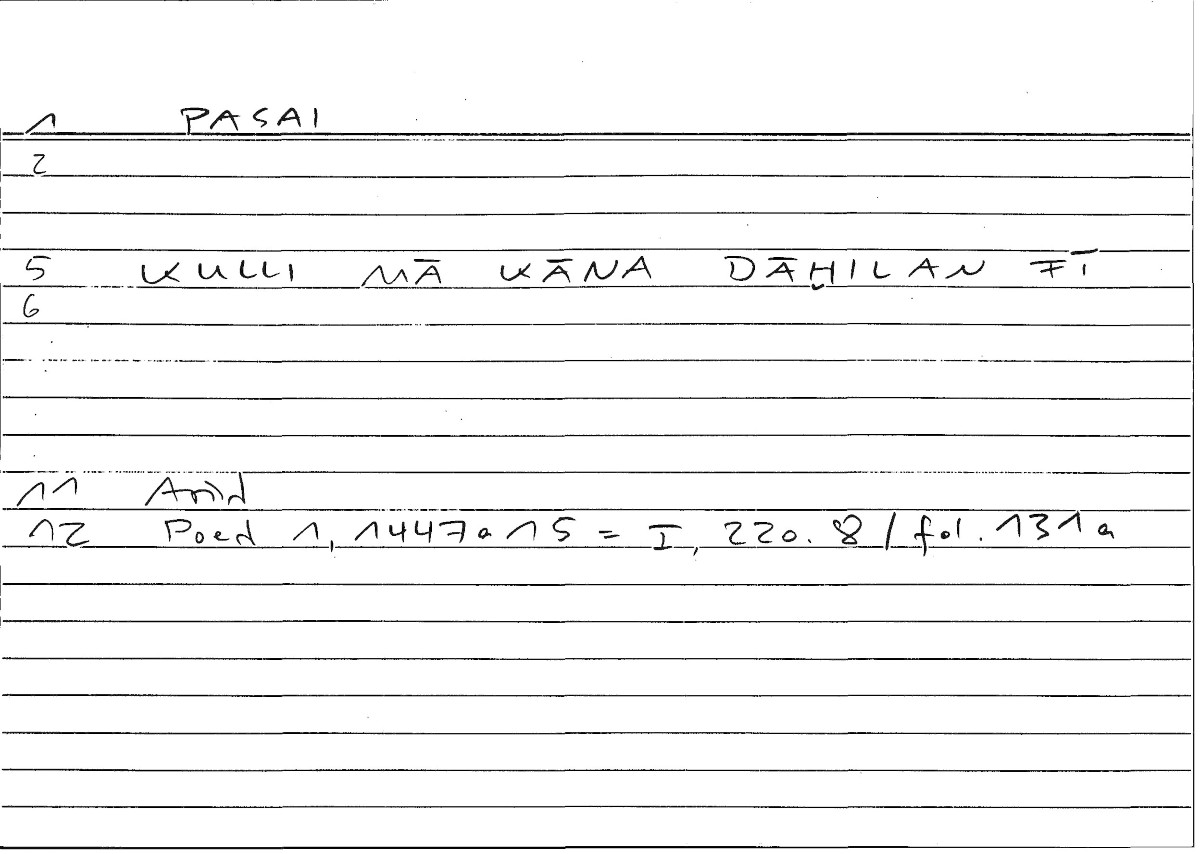 1 PASAI
2
5 KULLI MĀ KĀNA DĀḪILAN FĪ
6
11 Arid
12 Poed 1, 1447a15 = I, 220.8 / fol. 131a